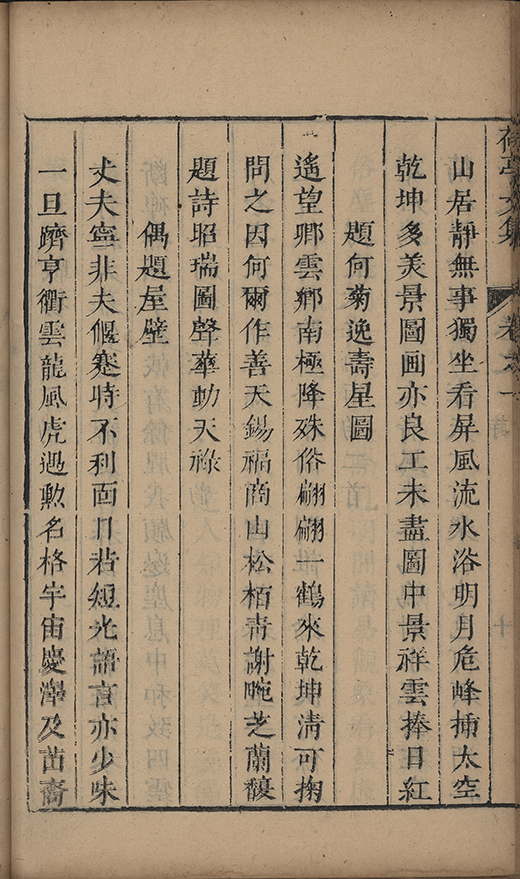 荷亭文集 卷之一 詩 十
山居靜無事獨坐看屏風流水浴明月危峰揷太空
乾坤多美景圖画亦良工未盡圖中景祥雲捧日紅
題何菊逸壽星圖
遥望鄉雲鄉南極降殊俗翩翩一鶴來乾坤淸可掬
問之因何爾作善天錫福商山松栢靑謝畹芝蘭馥
題詩昭瑞圖聲華動天祿
偶題屋壁
丈夫寧非夫偃蹇時不利面目若短光語言亦少味
一旦躋亨衢雲龍風虎遇勲名格宇宙慶澤及苗裔